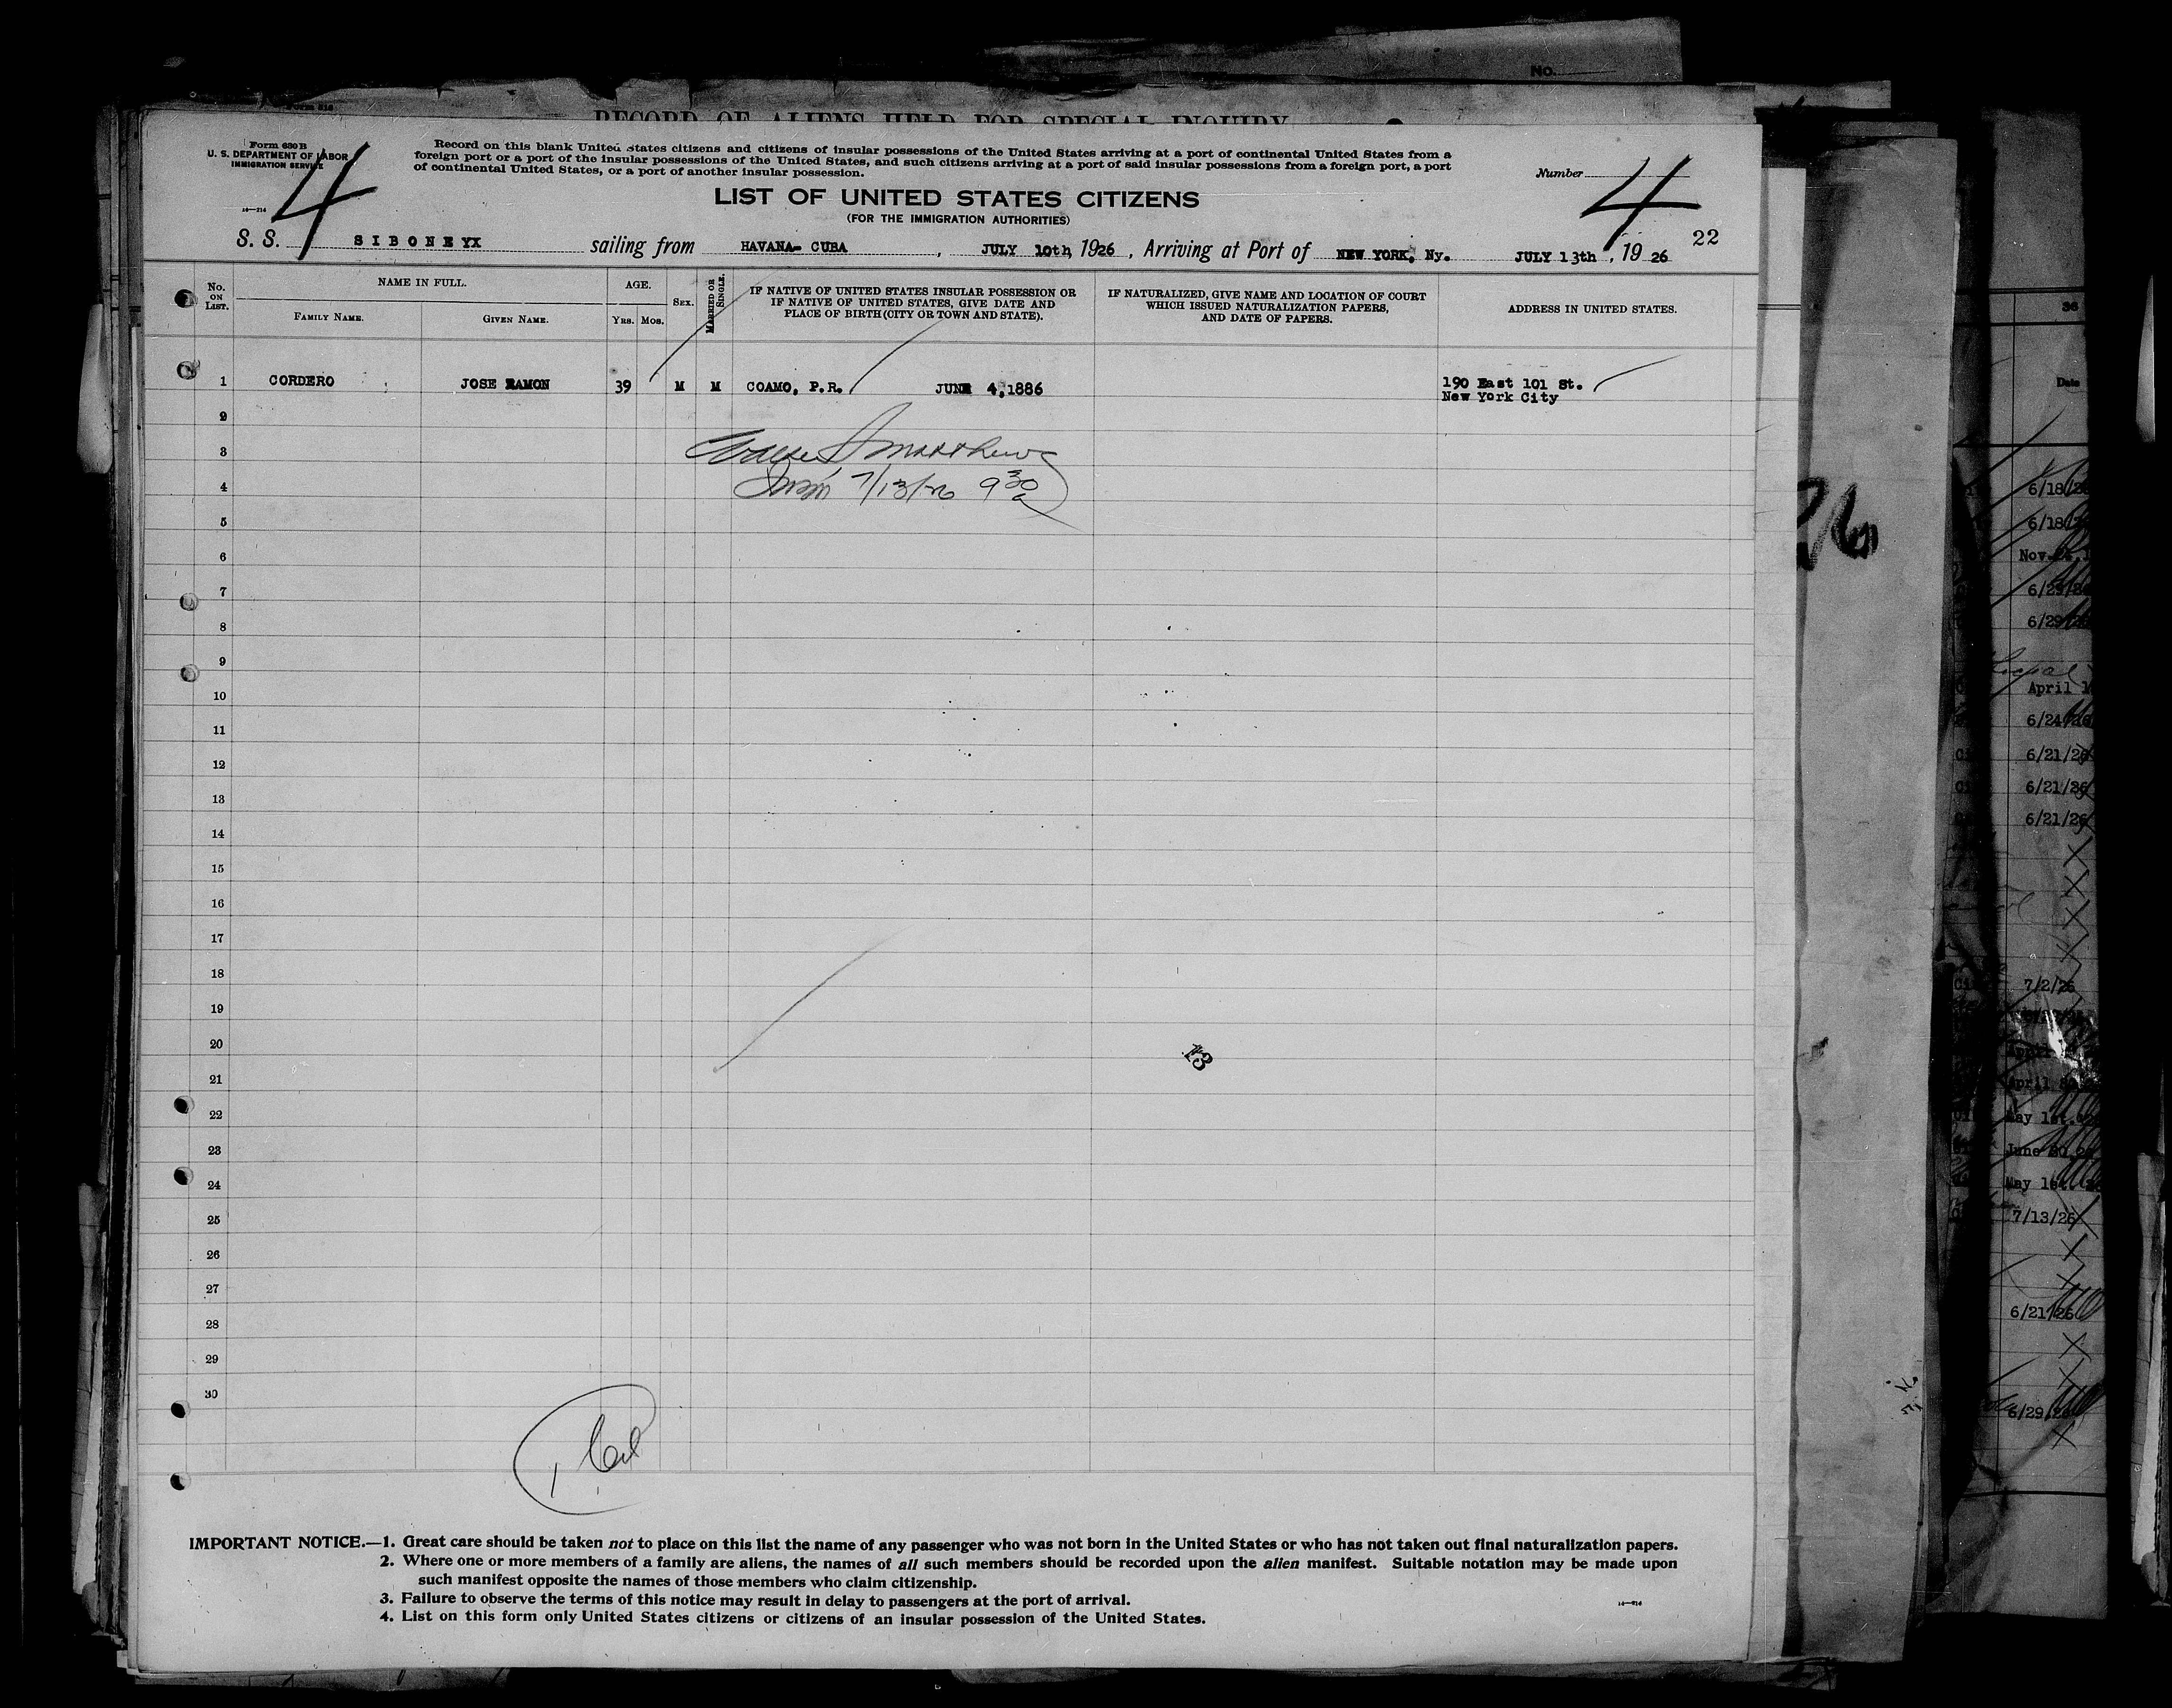 No.
RECORD OF ALIENS HELD FOR SPECIAL INQUIRY
Form 630 B
U. S. DEPARTMENT OF LABOR
IMMIGRATION SERVICE
14—214
4
Record on this blank United States citizens and citizens of insular possessions of the United States arriving at a port of continental United States from a
foreign port or a port of the insular possessions of the United States, and such citizens arriving at a port of said insular possessions from a foreign port, a port
of continental United States, or a port of another insular possession.
Number 4
LIST OF UNITED STATES CITIZENS
(FOR THE IMMIGRATION AUTHORITIES)
22
S. S. SIBONEYX sailing from HAVANA- CUBA, JULY 10th, 1926, Arriving at Port of NEW YORK, Ny. JULY 13th, 1926
No. ON LIST.
NAME IN FULL.
FAMILY NAME.
GIVEN NAME.
AGE.
YRS. MOS.
SEX.
MARRIED OR SINGLE.
IF NATIVE OF UNITED STATES INSULAR POSSESSION OR
IF NATIVE OF UNITED STATES, GIVE DATE AND
PLACE OF BIRTH (CITY OR TOWN AND STATE).
IF NATURALIZED, GIVE NAME AND LOCATION OF COURT
WHICH ISSUED NATURALIZATION PAPERS,
AND DATE OF PAPERS.
ADDRESS IN UNITED STATES.
1 CORDERO JOSE RAMON 39 M M COAMO, P.R. JUNE 4,1886 190 East 101 St.
New York City
2
3 Matthews
4 7/13/26 9 30 a
5
6
7
8
9
10
11
12
13
14
15
16
17
18
19
20
13
21
22
23
24
25
26
27
28
29
30
IMPORTANT NOTICE.—1. Great care should be taken not to place on this list the name of any passenger who was not born in the United States or who has not taken out final naturalization papers.
2. Where one or more members of a family are aliens, the names of all such members should be recorded upon the alien manifest. Suitable notation may be made upon
such manifest opposite the names of those members who claim citizenship.
3. Failure to observe the terms of this notice may result in delay to passengers at the port of arrival.
4. List on this form only United States citizens or citizens of an insular possession of the United States.
14—214
26
36
Date
6/18/26
6/18/2
Nov
6/29/26
6/29
April 1
6/24/26
6/21/26
6/21/26
6/21/26
7/2/26
April
May 1st.
June 30,
May 1st.
7/13/26
6/21/26
6/29/26